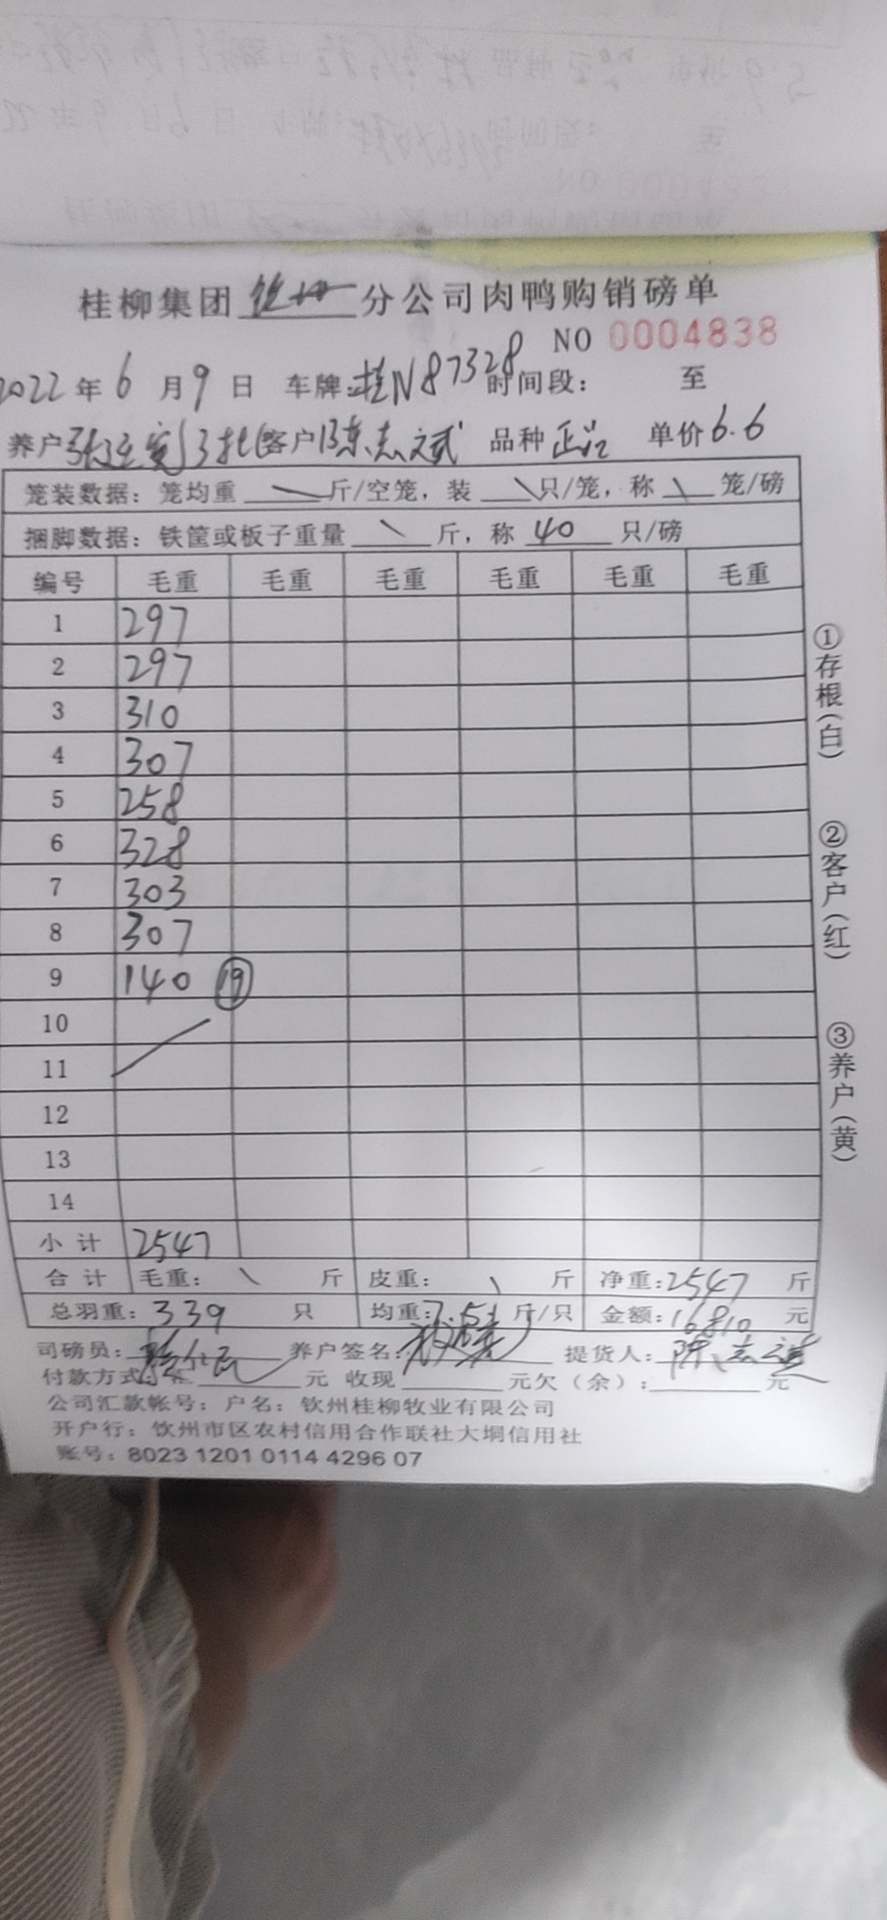 桂柳集团 分公司肉鸭购销磅单
NO 0004838
2022年6月9日 车牌:桂N87328 时间段: 至
养户 批 客户 陈志斌 品种 正 单价 6.6
笼装数据: 笼均重 \ 斤/空笼, 装 \ 只/笼, 称 \ 笼/磅
捆脚数据: 铁筐或板子重量 \ 斤, 称 40 只/磅
编号 毛重 毛重 毛重 毛重 毛重 毛重
1 297
2 297
3 310
4 307
5 258
6 328
7 303
8 307
9 140 ⑲
10
11
12
13
14
小计 2547
合计 毛重: \ 斤 皮重: \ 斤 净重: 2547 斤
总羽重: 339 只 均重: 7.51 斤/只 金额: 16810 元
司磅员: 养户签名: 提货人: 陈志斌
付款方式: 元 收现 元欠(余): 元
公司汇款帐号: 户名: 钦州桂柳牧业有限公司
开户行: 钦州市区农村信用合作联社大垌信用社
账号: 8023 1201 0114 4296 07
①存根(白)
②客户(红)
③养户(黄)